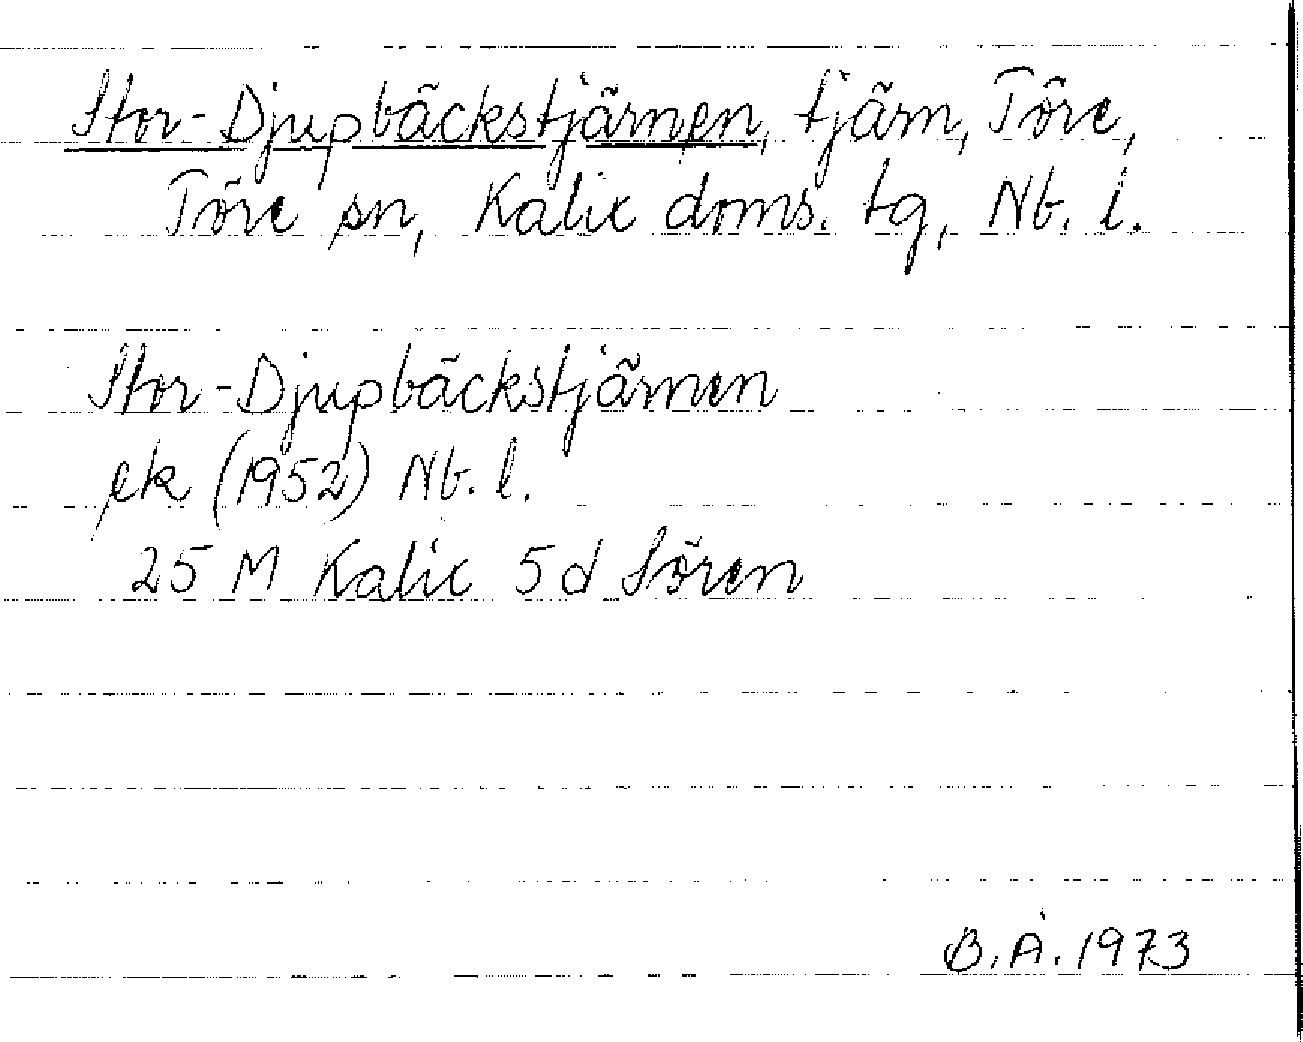 Stor-Djupbäckstjärnen, tjärn, Töre,
Töre sn, Kalix doms. tg, Nb. l.
Stor-Djupbäckstjärnen
ek (1952) Nb. l.
25 M Kalix 5d Sören
B. Å. 1973